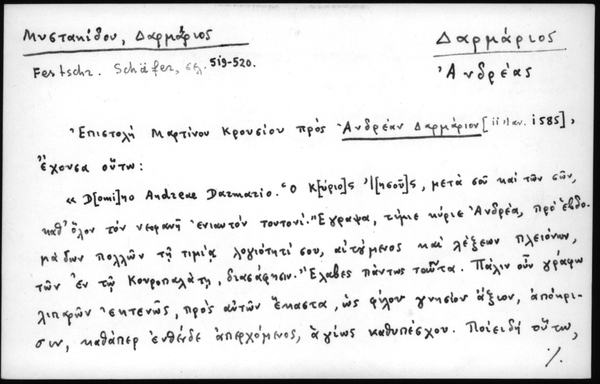 Μυστακίδου, Δαρμάριος
Δαρμάριος
Festschr. Schäfer, σελ. 519-520.
Ἀνδρέας
Ἐπιστολὴ Μαρτίνου Κρουσίου πρὸς Ἀνδρέαν Δαρμάριον [ἰαν. 1585],
ἔχουσα οὕτω:
« D[omi]no Andreae Darmario. Ὁ Κ[ύριο]ς Ἰ[ησοῦ]ς, μετὰ σοῦ καὶ τῶν σῶν,
καθ' ὅλον τὸν νεοφανῆ ἐνιαυτὸν τουτονί. Ἔγραψα, τίμιε κύριε Ἀνδρέα, πρὸ ἑβδο-
μάδων πολλῶν τῇ τιμίᾳ λογιότητί σου, αἰτούμενος καὶ λέξεων πλειόνων,
τῶν ἐν τῷ Κουροπαλάτῃ, διασάφησιν. Ἔλαβες πάντως ταῦτα. Πάλιν οὖν γράφω
λιπαρῶν ἐκτενῶς, πρὸς αὐτῶν ἕκαστα, ὡς φίλου γνησίου ἄξιον, ἀπόκρι-
σιν, καθάπερ ἐνθένδε ἀπερχόμενος, ἁγίως καθυπέσχου. Ποίει δὴ οὕτω,
%.